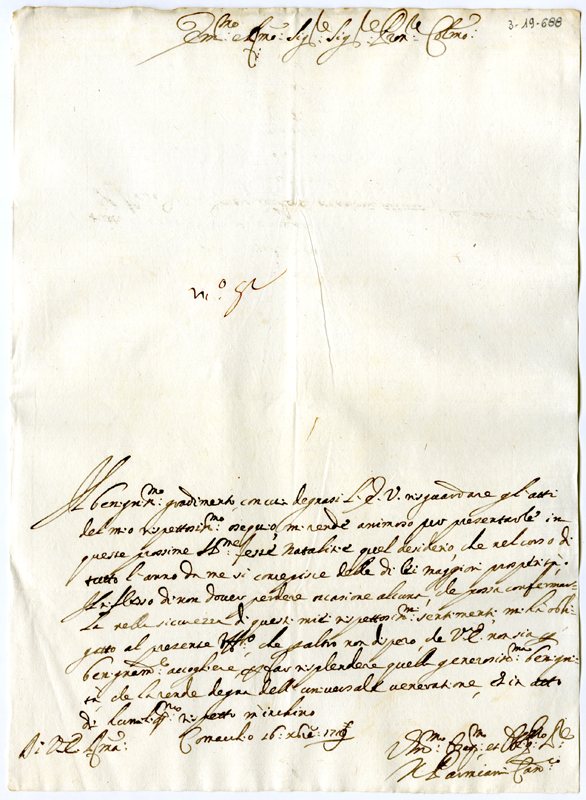 3-19-688
Sig.re Sig.re Pron.e Col.mo
Il benign.mo gradimento, con cui degnasi L'E. V. risguardare gl'atti
del mio rispettosis.mo ossequio, mi rende animoso per presentarle in
queste prossime SS.me feste Natalizie quel desiderio, che nel corso di
tutto l'anno da me si concepisce delle di lei maggiori prosperità.
Il riflesso di non dover perdere occasione alcuna, che possa confermar-
la nella sicurezza di questi miei rispettosis.mi sentimenti mi ha obli-
gato al presente Uff.o, che peraltro non dispero, che V.E. non sia p
benignam.e accogliere, far risplendere quella generosis.ma benigni-
tà, che la rende degna dell'universale venerazione, et in atto
di rispetto m'inchino
Di V.E. Comacchio 16: Xbre